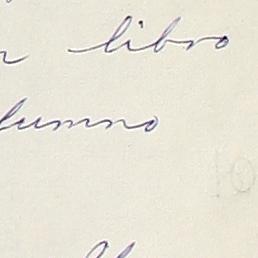 libro
lumno
10